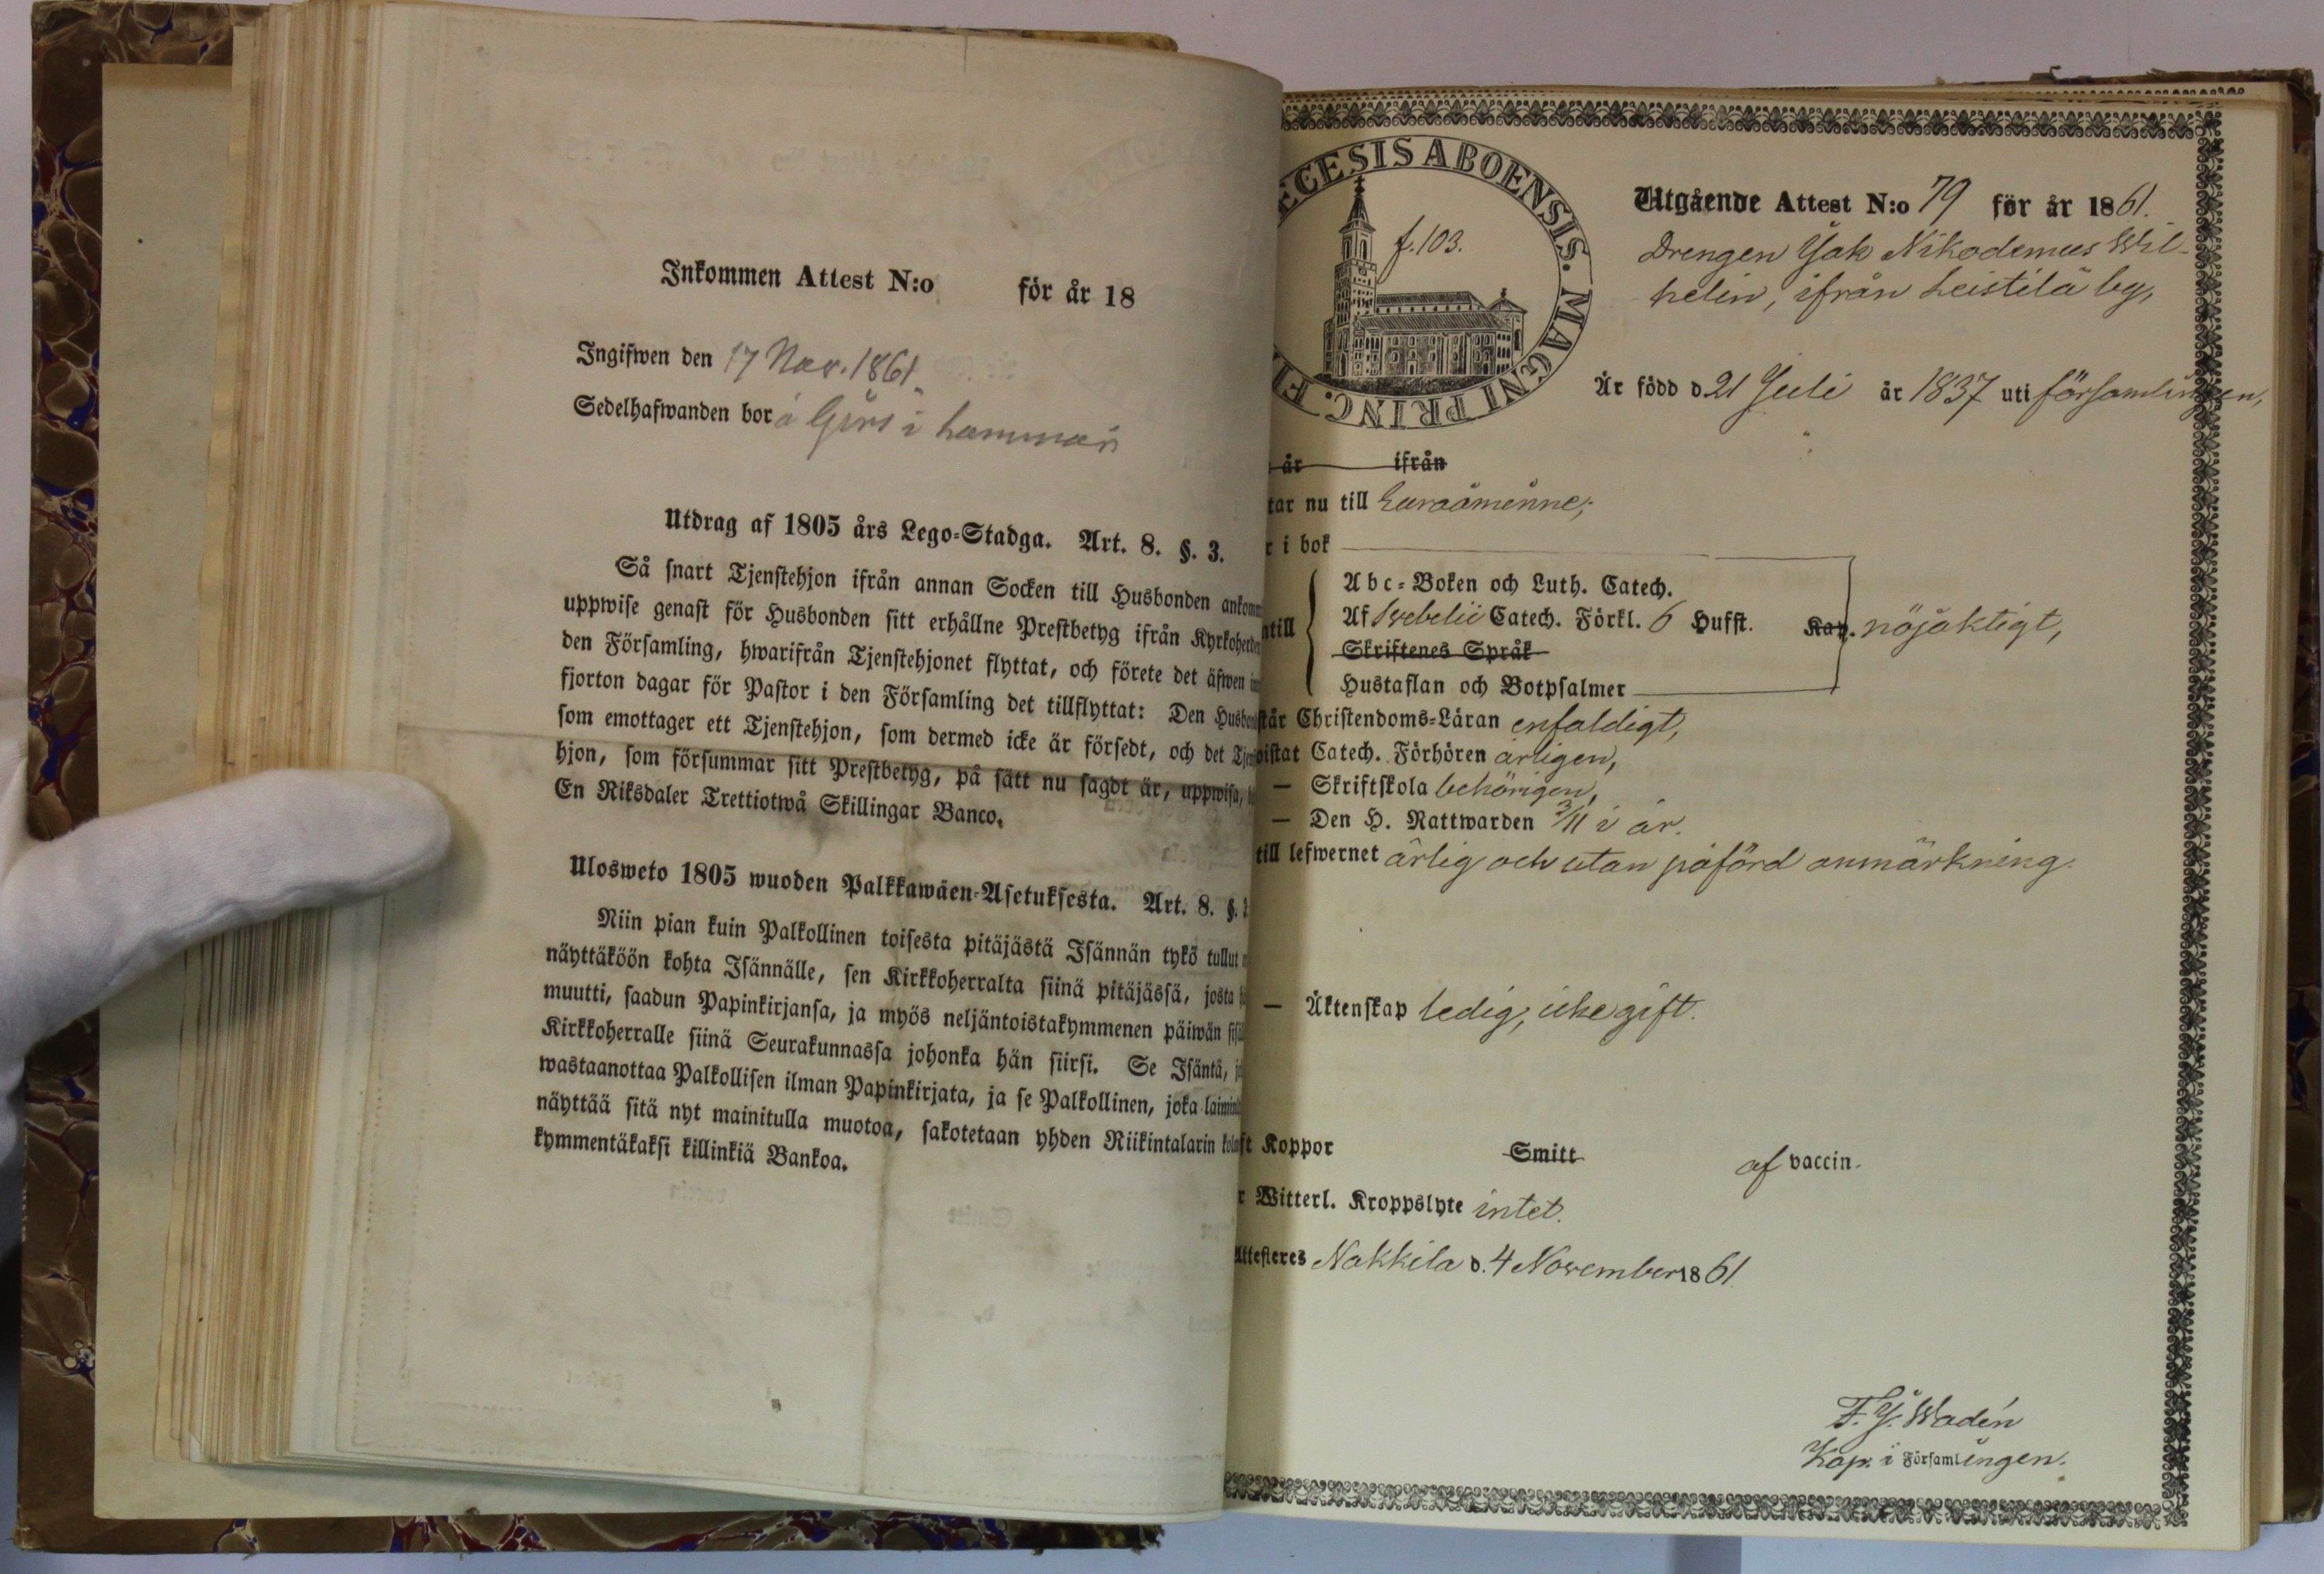 Inkommen Attest N:o för år 18
Ingifwen den 17 Nov. 1861
Sedelhafwanden bor å
Utdrag af 1805 års Lego-Stadga. Art. 8. §. 3.
Så snart Tjenstehjon ifrån annan Socken till Husbonden
uppwise genast för Husbonden sitt erhållne Prestbetyg ifrån
den Församling, hwarifrån Tjenstehjonet flyttat, och förete det äfwen
fjorton dagar för Pastor i den Församling det tillflyttat: Den
som emottager ett Tjenstehjon, som dermed icke är försedt, och det
hjon, som försummar sitt Prestbetyg, på sätt nu sagdt är, uppwisa,
En Riksdaler Trettiotwå Skillingar Banco.
Ulosweto 1805 wuoden Palkkawäen-Asetuksesta. Art. 8. §.
Niin pian kuin Palkollinen toisesta pitäjästä Isännän tykö tullut
näyttäköön kohta Isännälle, sen Kirkkoherralta siinä pitäjässä, josta
muutti, saadun Papinkirjansa, ja myös neljäntoistakymmenen päiwän
Kirkkoherralle siinä Seurakunnassa johonka hän siirsi. Se Isäntä,
wastaanottaa Palkollisen ilman Papinkirjata, ja se Palkollinen, joka
näyttää sitä nyt mainitulla muotoa, sakotetaan yhden Riikintalarin
kymmentäkaksi killinkiä Bankoa.
ECESIS ABOENSIS. MAGNI PRINC. FI
f. 103.
Utgående Attest N:o 79 för år 1861.
Drengen Isak Nikodemus Wil-
helin, ifrån Leistilä by,
Är född d 21 Juli år 1837 uti församlingen,
år ifrån
tar nu till Euraåminne;
r i bok
ntill
Abc-Boken och Luth. Catech.
Af Swebelii Catech. Förkl. 6 Hufst. Kap. nöjaktigt,
Skriftenes Språk
Hustaflan och Botpsalmer
står Christendoms-Läran enfaldigt,
oistat Catech. Förhören årligen,
— Skriftskola behörigen,
— Den H. Nattwarden 3/11 i år.
till lefwernet ärlig och utan påförd anmärkning.
— Äktenskap ledig, icke gift.
ft Koppor Smitt af vaccin.
r Witterl. Kroppslyte intet.
Attesteres Nakkila d. 4 November 1861
F. J. Wadén
Kap. i Församlingen.